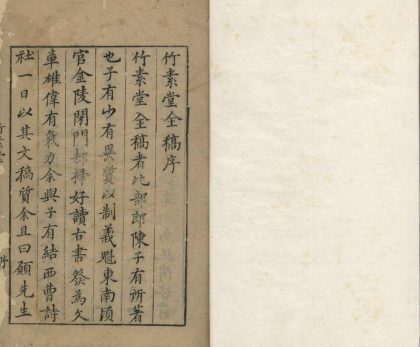 竹素堂全稿序
竹素堂全稿者比部郎陳子有所著
也子有少有異質以制義魁東南頃
官金陵閉門却掃好讀古書發為文
章雄偉有氣力余與子有結西曹詩
社一日以其文稿質余且曰願先生
序